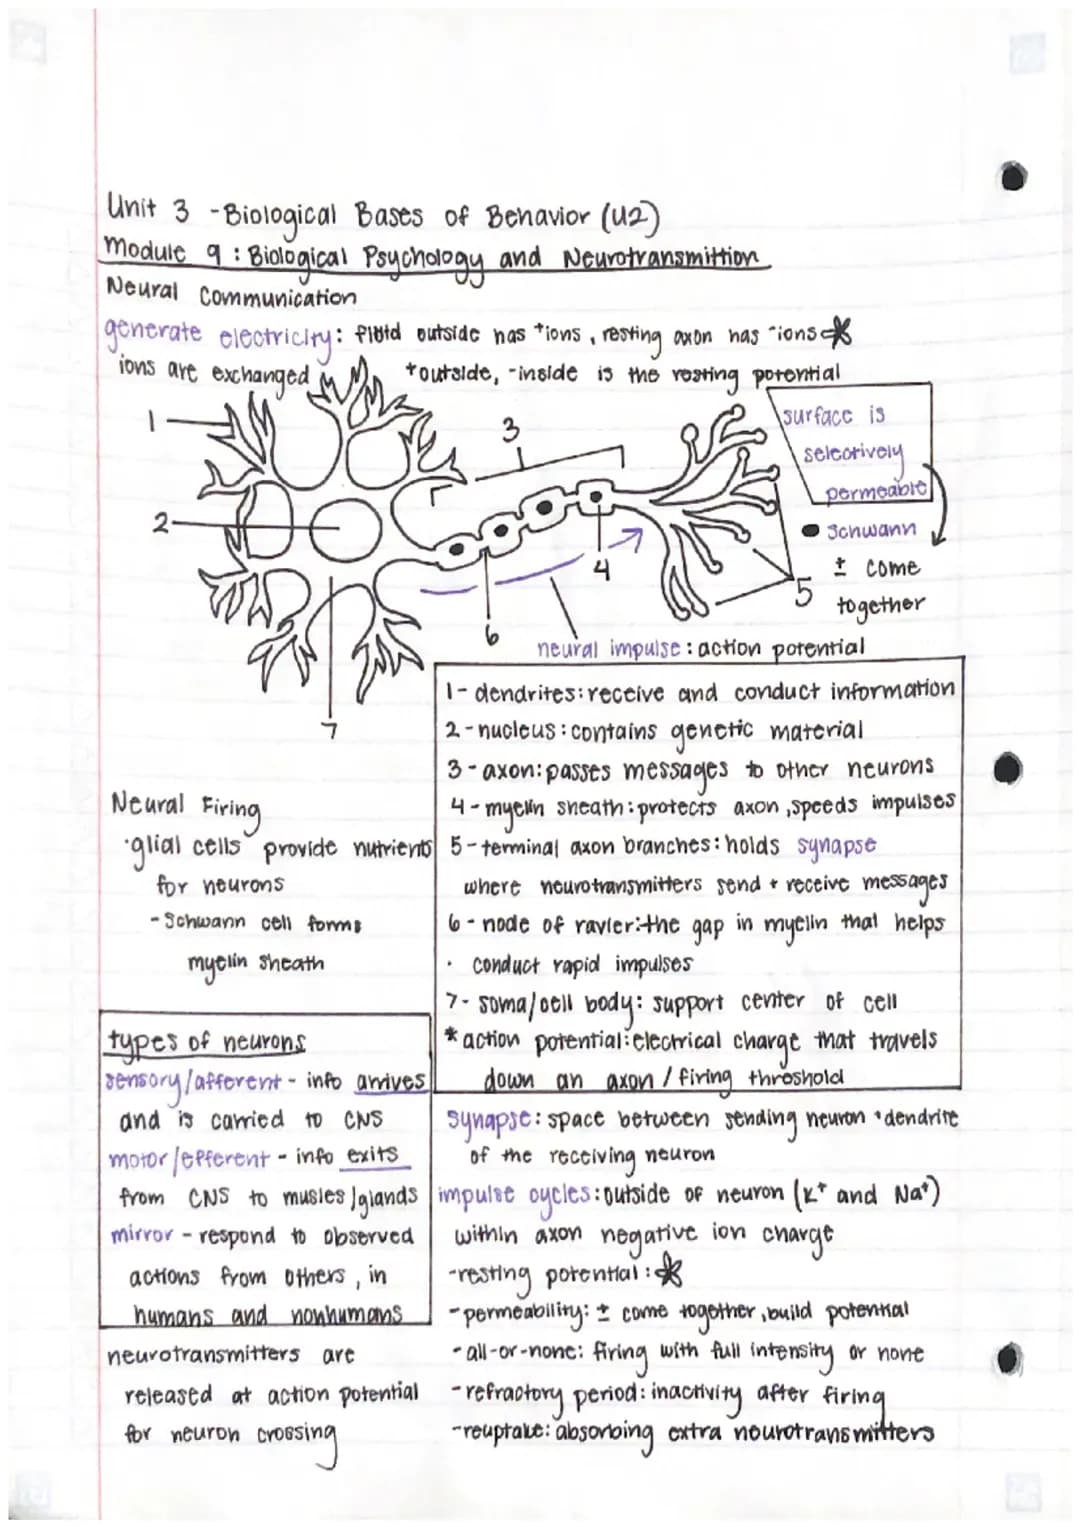 Unit 3 - Biological Bases of Behavior (U2)
Module 9 : Biological Psychology and Neurotransmittion
Neural Communication
generate electricity: fluid outside has +ions, resting axon has -ions *
ions are exchanged
+outside, -inside is the resting potential
surface is
selectively
permeable
Schwann
± come
together
1
2
3
4
5
6
7
neural impulse: action potential
1 - dendrites: receive and conduct information
2 - nucleus: contains genetic material
3 - axon: passes messages to other neurons
4 - myelin sheath: protects axon, speeds impulses
5 - terminal axon branches: holds synapse
where neurotransmitters send + receive messages
6 - node of ravier: the gap in myelin that helps
conduct rapid impulses
7 - soma/cell body: support center of cell
* action potential: electrical charge that travels
down an axon / firing threshold
Neural Firing
·glial cells provide nutrients
for neurons
- Schwann cell forms
myelin sheath
types of neurons
sensory/afferent - info arrives
and is carried to CNS
motor/efferent - info exits
from CNS to musles/glands
mirror - respond to observed
actions from others, in
humans and nonhumans
neurotransmitters are
released at action potential
for neuron crossing
synapse: space between sending neuron + dendrite
of the receiving neuron
impulse cycles: outside of neuron (K+ and Na+)
within axon negative ion charge
- resting potential: *
- permeability: ± come together, build potential
- all-or-none: firing with full intensity or none
- refractory period: inactivity after firing
- reuptake: absorbing extra neurotransmitters